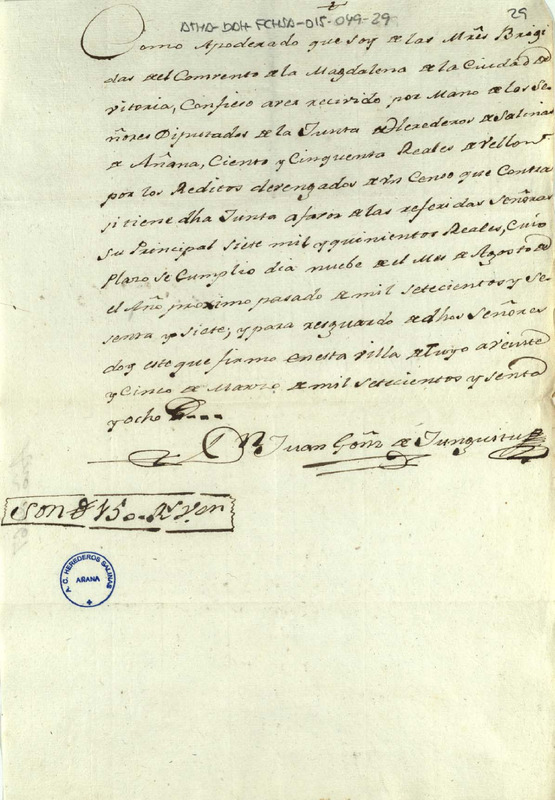 ATHA-DAH-FCHSA-015-049-29
29
Como Apoderado que soy de las Mrẽs Brigi
das del Comvento de la Magdalena de la Ciudad de
vitoria, Confieso aver recivido por Mano de los Se
ñores Diputados de la Junta de Herederos de Salinas
de Añana, Ciento y Cinquenta Reales de Vellon
por los Reditos devengados de vn Censo que Contra
si tiene dha Junta afavor de las referidas Señoras
su Principal siete mil y quinientos Reales, Cuio
Plazo se Cumplio dia nuebe de el Mes de Agosto de
el Año proximo pasado de mil setecientos y se
senta y siete; y para resguardo de dhos Señores
doy este que firmo en esta villa de Tuyo a veinte
y Cinco de Marzo de mil setecientos y senta
y ocho
Juan Goñz de Junguitu
Son 150 Rs von
A. C. HEREDEROS SALINAS
AÑANA